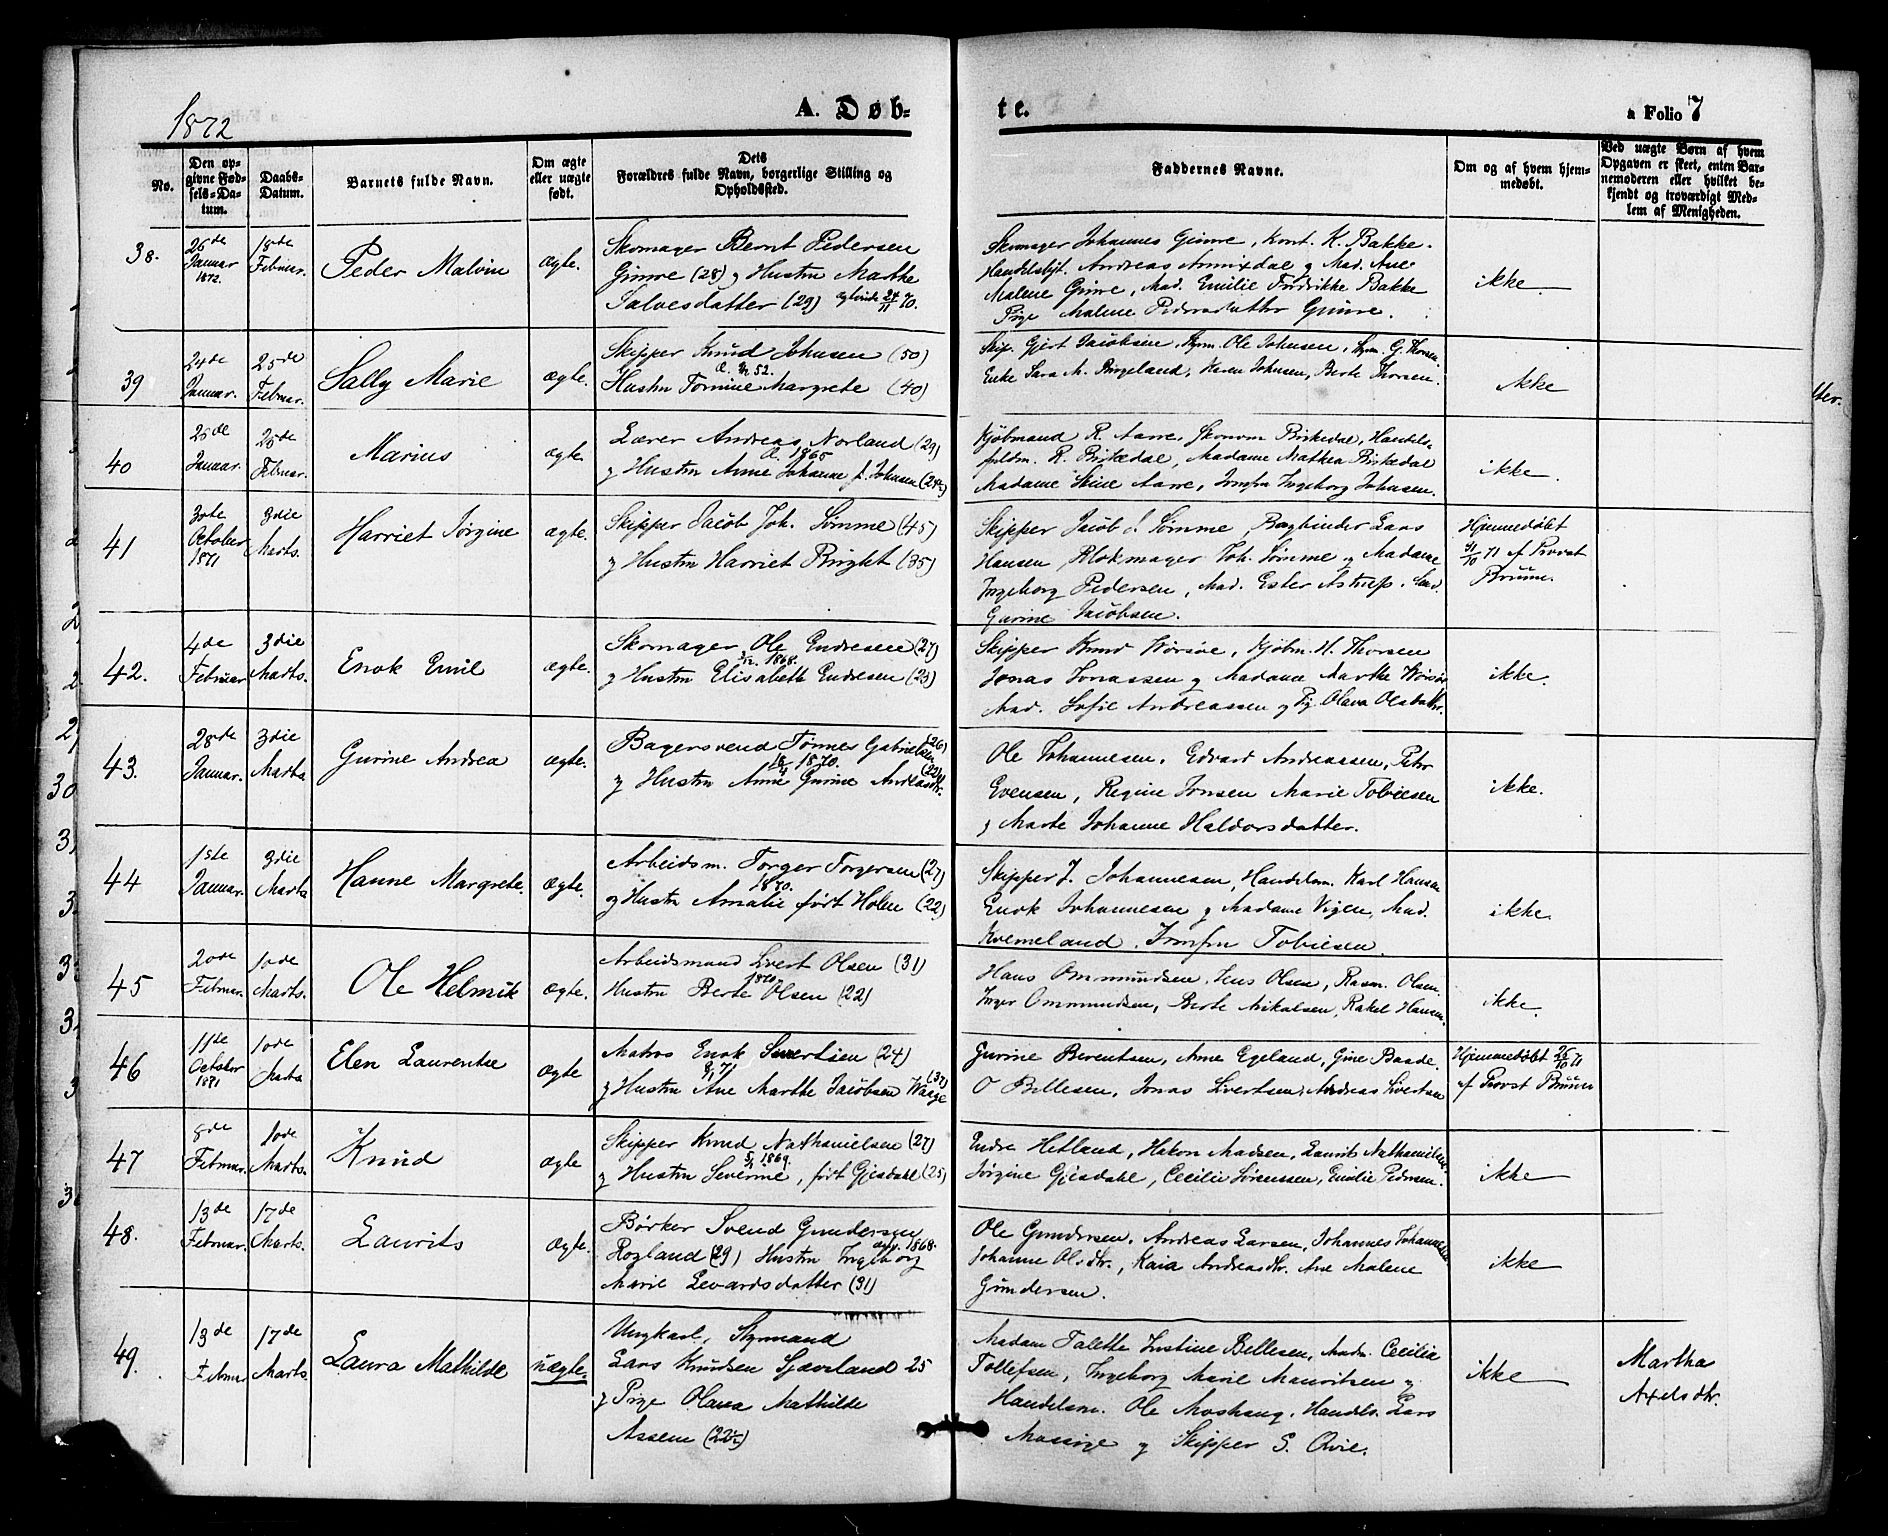 1872
A. Døb-
te.
a Folio 7
No.
Den op-
givne Fød-
sels-Da-
tum.
Daabs-
Datum.
Barnets fulde Navn.
Om ægte
eller uægte
født.
Dets
Forældres fulde Navn, borgerlige Stilling og
Opholdssted.
Faddernes Navne.
Om og af hvem hjem-
medøbt.
Ved uægte Børn af hvem
Opgaven er skeet, enten Bar-
nemoderen eller hvilket be-
kjendt og troværdigt Med-
lem af Menigheden.
38.
26de
Januar
1872.
18de
Februar.
Peder Malvin
ægte.
Skomager Bernt Pedersen
Gimre (28) og Hustru Marthe
Salvesdatter (29) 24/11 70.
Skomager Johannes Gimre, Kont. K. Bakke.
Andreas og Mad. Ane
Malene Gimre, Mad. Emilie Fredrikke Bakke
Pige Malene Pedersdatter Gimre.
ikke
39
24de
Januar.
25de
Februar.
Sally Marie
ægte.
Skipper Knud Johnsen (50)
52.
Hustru Tomine Margrete (40)
Skip. Gjert Jacobsen, Ole Johnsen, G. Thorsen
Enke Sara M. Ringeland, Karen Johnsen, Berte Thorsen.
Ikke
40
25de
Januar.
25de
Februar.
Marius
ægte.
Lærer Andreas Norland (29)
1865
og Hustru Anne Johanne f. Johnsen (24½)
Kjøbmand R. Aarre, Birkedal, Handels-
fuldm. R. Birkedal, Madame Mathea Birkedal
Madame Stine Aarre, Jomfru Ingeborg Johnsen.
ikke
41
3ote
October
1871
3die
Marts.
Harriet Jørgine
ægte.
Skipper Jacob Joh. Sømme (45)
og Hustru Harriet Bright (35)
Skipper Jacob J. Sømme, Bogbinder Lars
Hansen Blokmager Joh. Sømme og Madame
Ingeborg Pedersen, Mad. Ester Astrup.
Gurine Jacobsen.
Hjemmedøbt
31/10 71 af Provst
Bruun.
42.
4de
Februar
3die
Marts.
Enok Emil
ægte.
Skomager Ole Endresen (27)
1868.
og Hustru Elisabeth Endresen (23)
Skipper Knud Kørsøe, Kjøbm. H. Thorsen
Jonas Jonassen og Madame Marthe
Mad. Sofie Andreassen og Pg. Olava Olsdatter.
ikke.
43.
28de
Januar.
3die
Marts
Gurine Andrea
ægte.
Bagersvend Tønnes Gabrielsen (26)
1870.
og Hustru Anne Gurine Andreasdtr. (22)
Ole Johannesen, Edvard Andreassen, Peter
Evensen, Regine Jonsen Marie Tobiesen
og Marte Johanne Haldorsdatter.
ikke.
44
1ste
Januar.
3die
Marts
Hanne Margrete.
ægte.
Arbeidsm. Torger Torgersen (27)
1870.
og Hustru Amalie født Holm (22)
Skipper J. Johannesen, Handelsm. Karl Hansen
Enok Johannesen og Madame Vigen, Mad.
Kverneland. Jomfru Tobiesen.
ikke.
45
20de
Februar.
10de
Marts.
Ole Helmik
ægte.
Arbeidsmand Sivert Olsen (31)
1870.
Hustru Berte Olsen (22)
Hans Ommundsen, Jens Olsen, Rasm. Olsen
Inger Ommundsen, Berte Mikalsen, Rakel Hansen.
ikke.
46
11te
October
1871
10de
Marts
Elen Laurentse
ægte
Matros Enok Sivertsen (24)
71
og Hustru Ane Marthe Jacobsen Waage (37)
Gurine Berentsen, Anne Egeland, Gine Baade.
O Bellesen, Jonas Sivertsen, Andreas Sivertsen
Hjemmedøbt 26/10 71
af Provst Bruun
47
8de
Februar.
10de
Marts.
Knud
ægte
Skipper Knud Nathanielsen (27)
5/1 1869.
og Hustru Severine, født Gjesdahl (25)
Endre Hetland, Hakon Madsen, Laurits Nathanielsen
Jørgine Gjesdahl, Cecilie Sørenssen, Emilie Pedersen.
ikke
48.
13de
Februar.
17de
Marts.
Laurits
ægte.
Børker Svend Gundersen
1868.
Rogland (29) Hustru Ingeborg
Marie Sevardsdatter (31)
Ole Gundersen, Andreas Larsen, Johannes Johannesen
Johanne Olsdtr., Kaia Andreasdtr. Ane Malene
Gundersen.
ikke
49.
13de
Februar
17de
Marts.
Laura Mathilde
uægte.
Ungkarl, Styrmand
Lars Knudsen Sjøvsland 25
og Pige Olava Mathilde
Assen (22½)
Madam Talette Justine Bellesen, Madm. Cecilia
Tollefsen, Ingeborg Marie Mauritsen og
Handelsm. Ole Moshaug, Handels. Lars
og Skipper S. Qvie.
ikke
Martha
Axelsdtr.